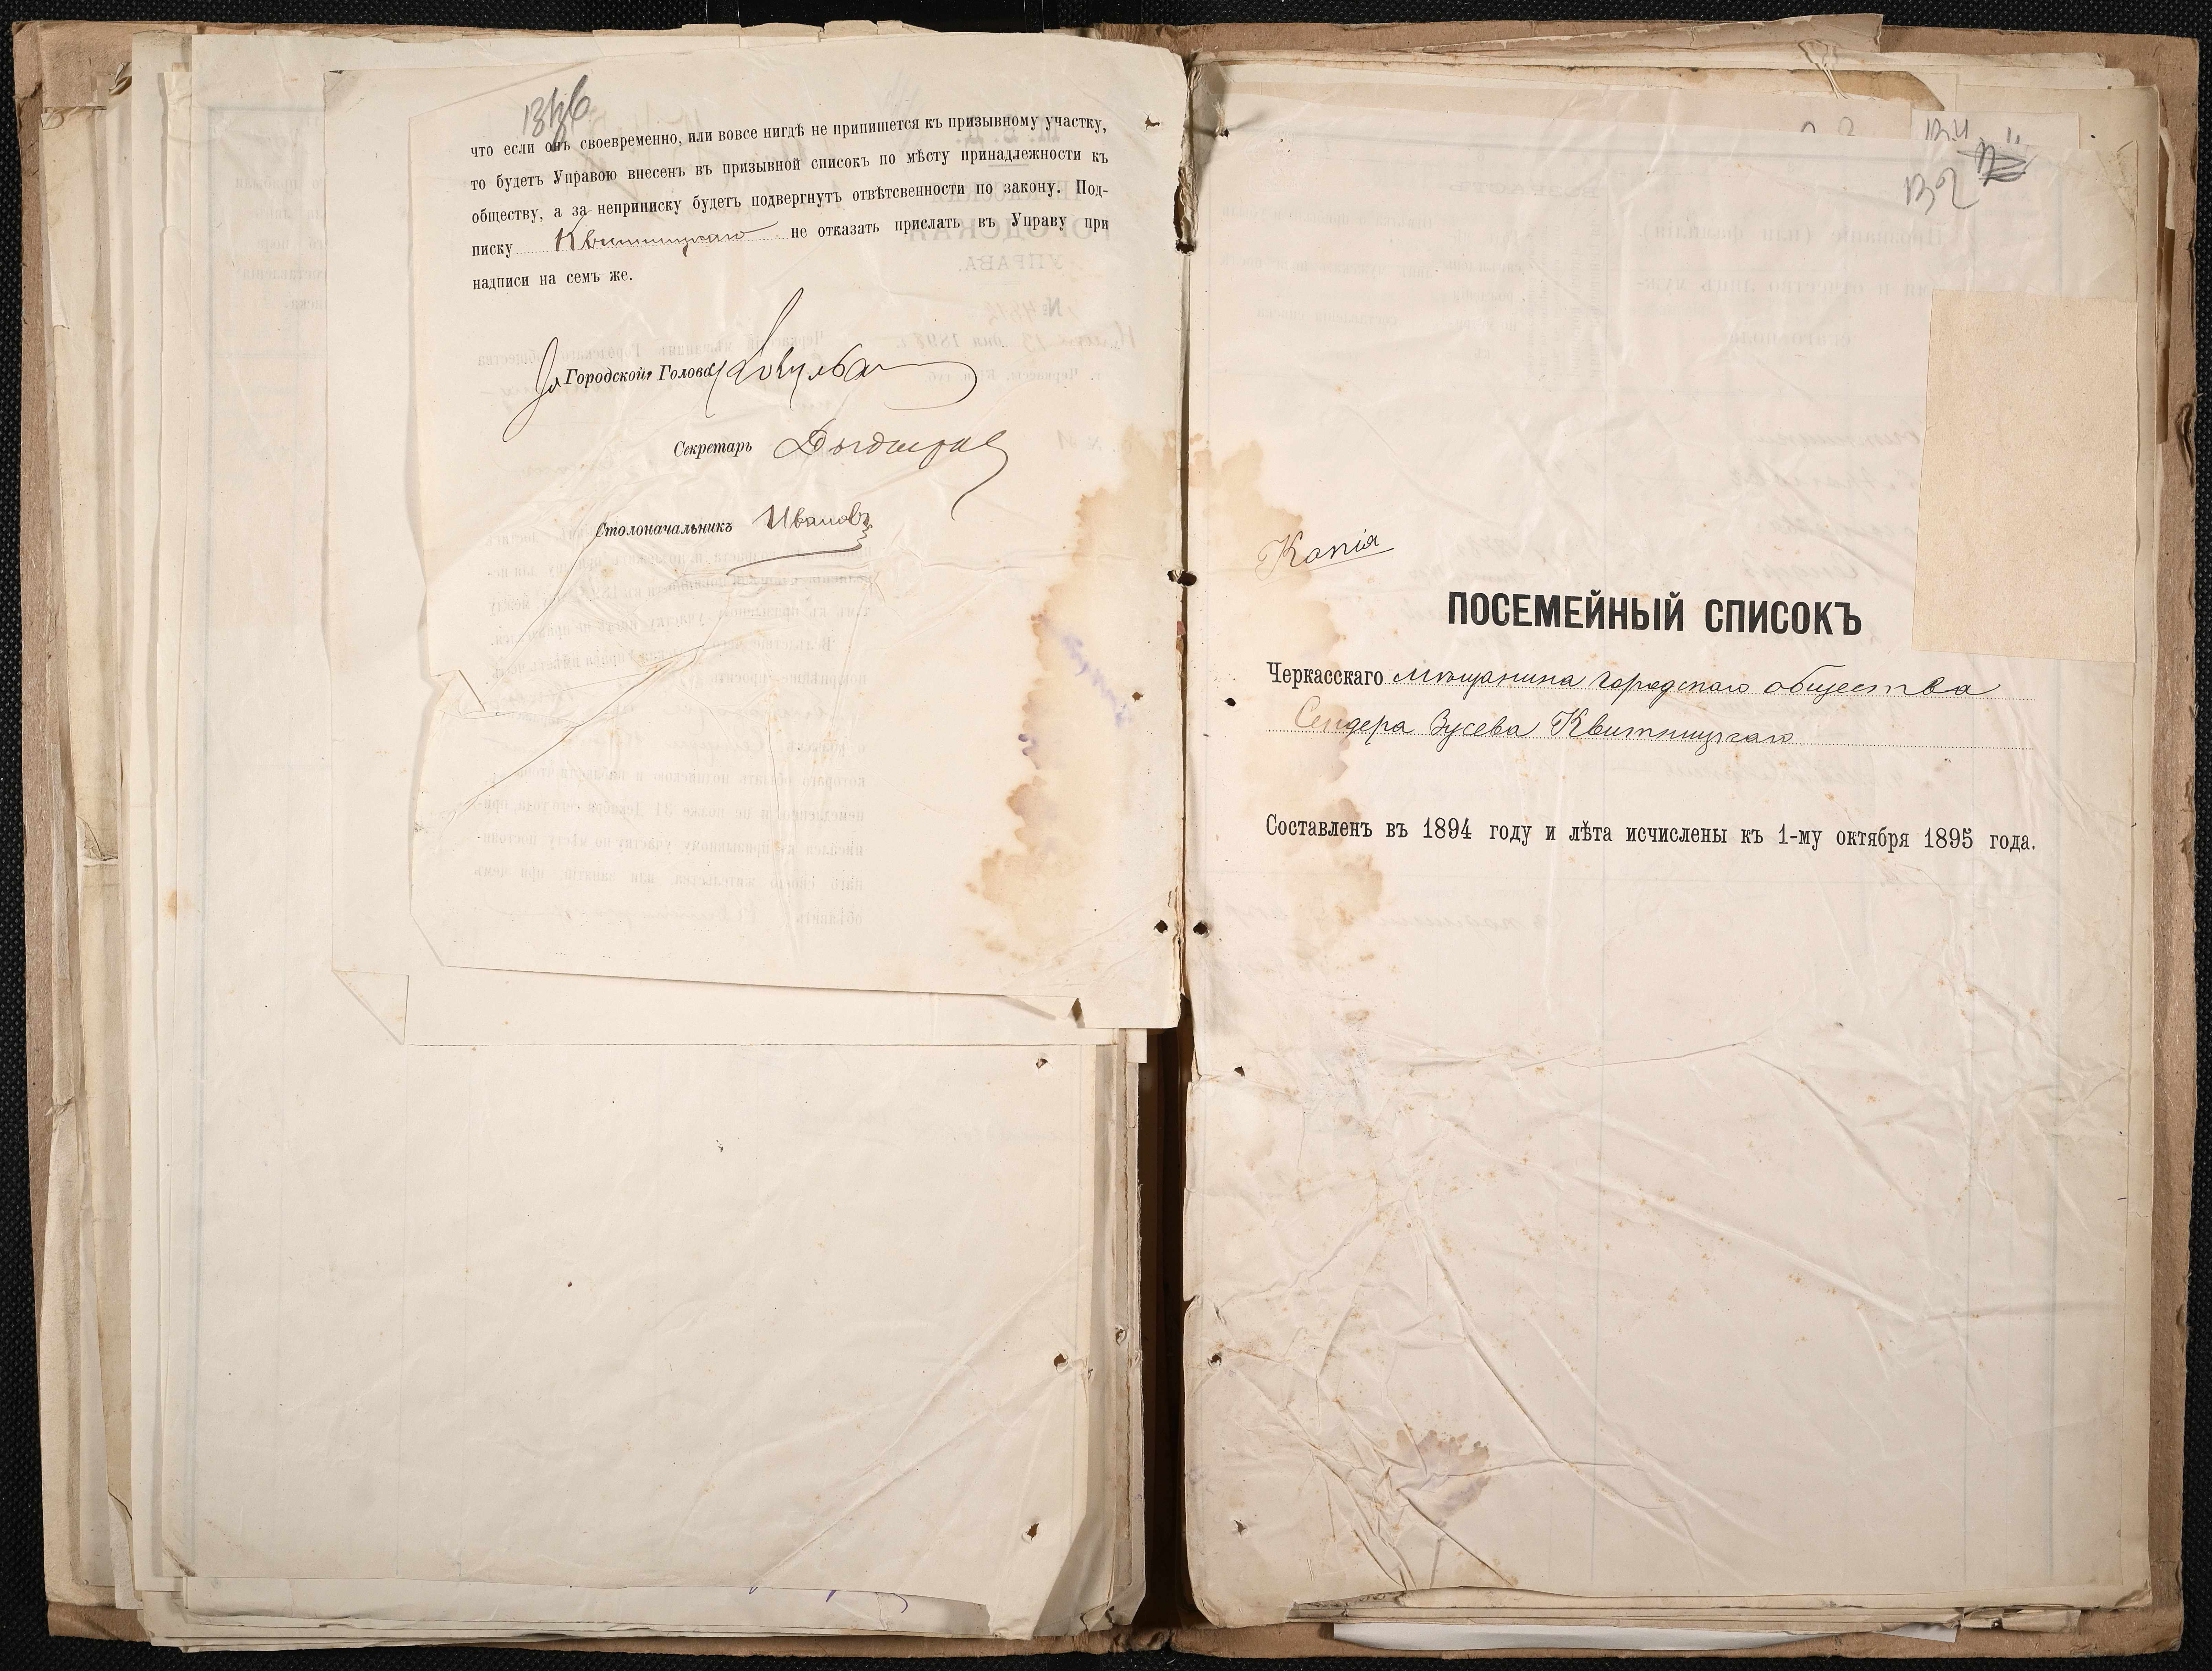 что если онъ своевременно, или вовсе нигдѣ не припишется къ призывному участку,
то будетъ Управою внесенъ въ призывной списокъ по мѣсту принадлежности къ
обществу, а за неприписку будетъ подвергнутъ отвѣтсвенности по закону. Под-
писку Квитницкаго не отказать прислать въ Управу при
надписи на семъ же.
Городской Голова
Секретарь
Столоначальникъ Ивановъ
132
Копія
ПОСЕМЕЙНЫЙ СПИСОКЪ
Черкасскаго мѣщанина городского общества
Сендера Зусева Квитницкаго
Составленъ въ 1894 году и лѣта исчислены къ 1-му октября 1895 года.